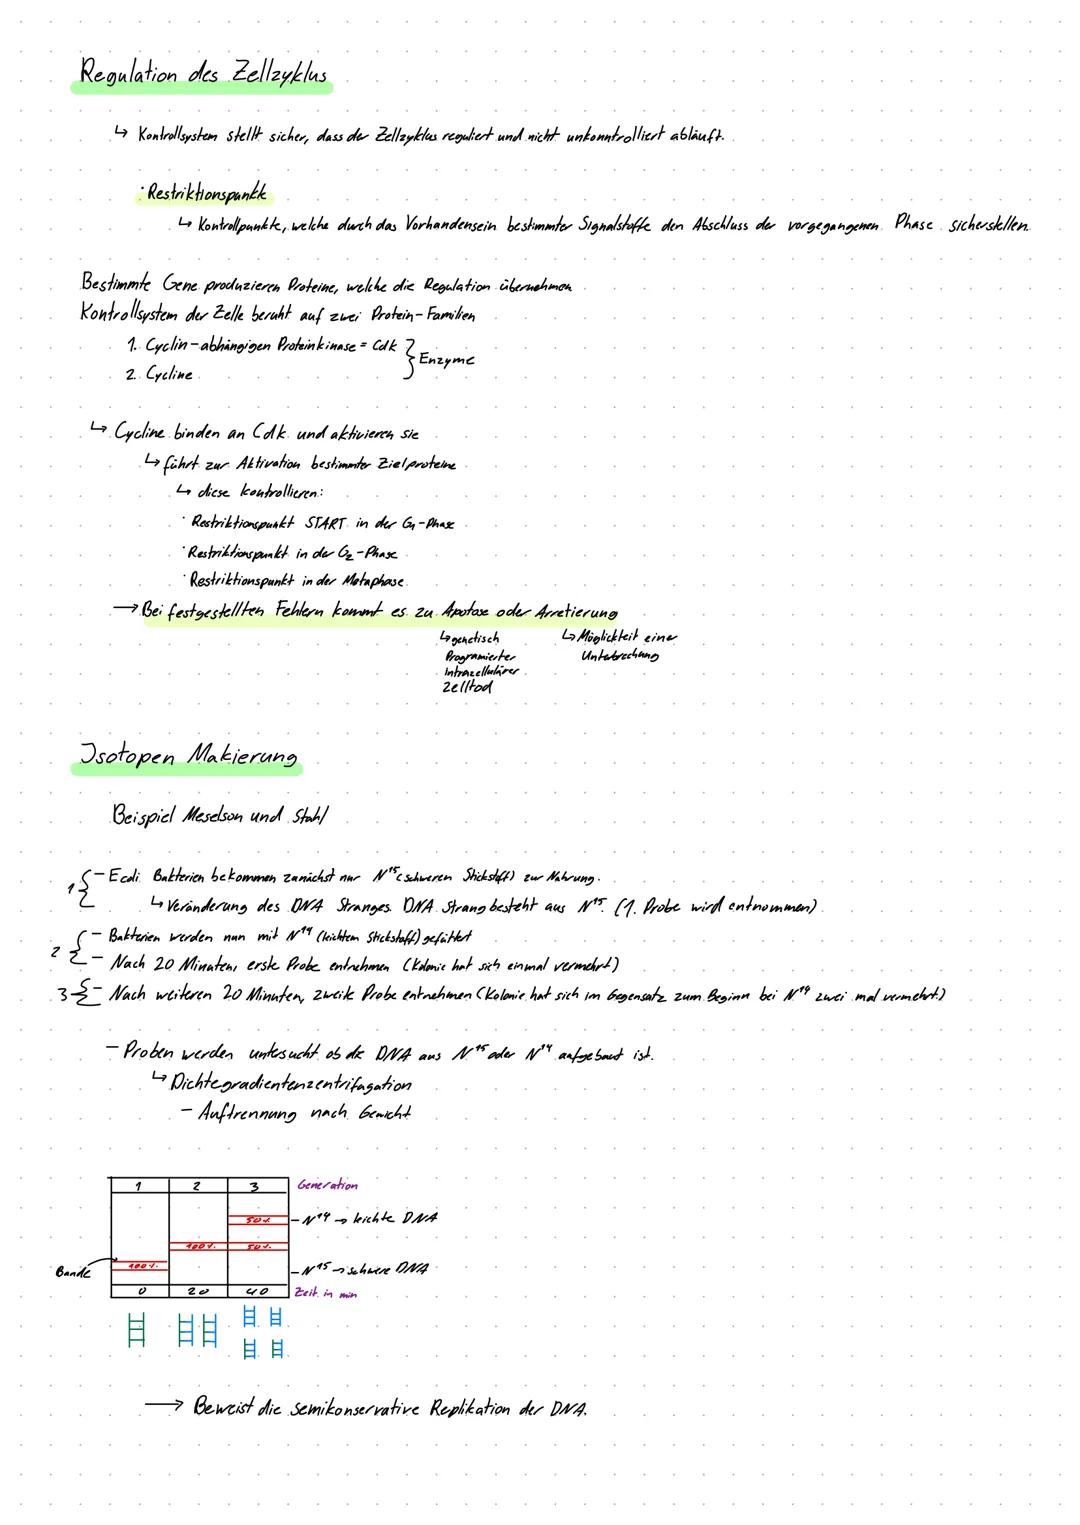 Regulation des Zellzyklus
↳ Kontrollsystem stellt sicher, dass der Zellzyklus reguliert und nicht unkonntrolliert abläuft.
· Restriktionspunkt
↳ Kontrollpunkte, welche durch das Vorhandensein bestimmter Signalstoffe den Abschluss der vorgegangenen Phase sicherstellen.
Bestimmte Gene produzieren Proteine, welche die Regulation übernehmen
Kontrollsystem der Zelle beruht auf zwei Protein-Familien
1. Cyclin-abhängigen Proteinkinase = Cdk
2. Cycline
} Enzyme
↳ Cycline binden an Cdk und aktivieren sie
↳ führt zur Aktivation bestimmter Zielproteine
↳ diese kontrollieren:
· Restriktionspunkt START in der G₁-Phase
· Restriktionspunkt in der G₂-Phase
· Restriktionspunkt in der Metaphase
→ Bei festgestellten Fehlern kommt es zu Apotose oder Arretierung
↳ genetisch
Programierter
Intrazellulärer
Zelltod
↳ Möglichkeit einer
Unterbrechung
Isotopen Makierung
Beispiel Meselson und Stahl
1 { - Ecoli Bakterien bekommen zunächst nur N¹⁵ (schweren Stickstoff) zur Nahrung.
↳ Veränderung des DNA Stranges. DNA Strang besteht aus N¹⁵. (1. Probe wird entnommen)
2 { - Bakterien werden nun mit N¹⁴ (leichtem Stickstoff) gefüttert
- Nach 20 Minuten, erste Probe entnehmen (Kolonie hat sich einmal vermehrt)
3 { - Nach weiteren 20 Minuten, zweite Probe entnehmen (Kolonie hat sich im Gegensatz zum Beginn bei N¹⁴ zwei mal vermehrt.)
- Proben werden untersucht ob die DNA aus N¹⁵ oder N¹⁴ aufgebaut ist.
↳ Dichtegradientenzentrifugation
- Auftrennung nach Gewicht
1 2 3 Generation
50% - N¹⁴ → leichte DNA
100% 50%
Bande 100% - N¹⁵ → schwere DNA
0 20 40 Zeit in min
→ Beweist die semikonservative Replikation der DNA.